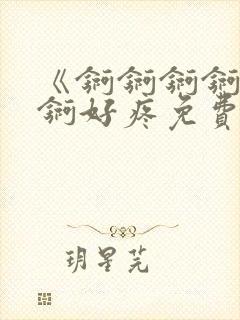 《锕锕锕锕
锕好疼免费
玥星芫